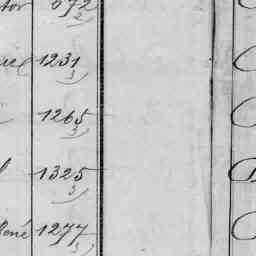 tor 672
2
1231
3
1265
3
1325
3
René 1277
3